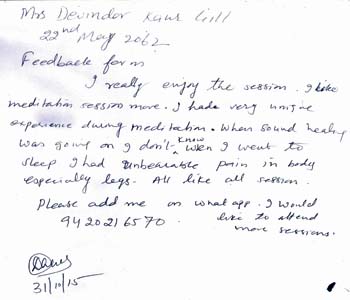 Mrs Devinder Kaur Gill
22nd May 2062
Feedback form
I really enjoy the session. I like
meditation session more. I had a very unique
experience during meditation. When sound healing
was going on I don't know when I went to
sleep I had unbearable pain in body
especially legs. All like all session.
Please add me on what app. I would
9420216570. like to attend
more sessions.
31/10/15